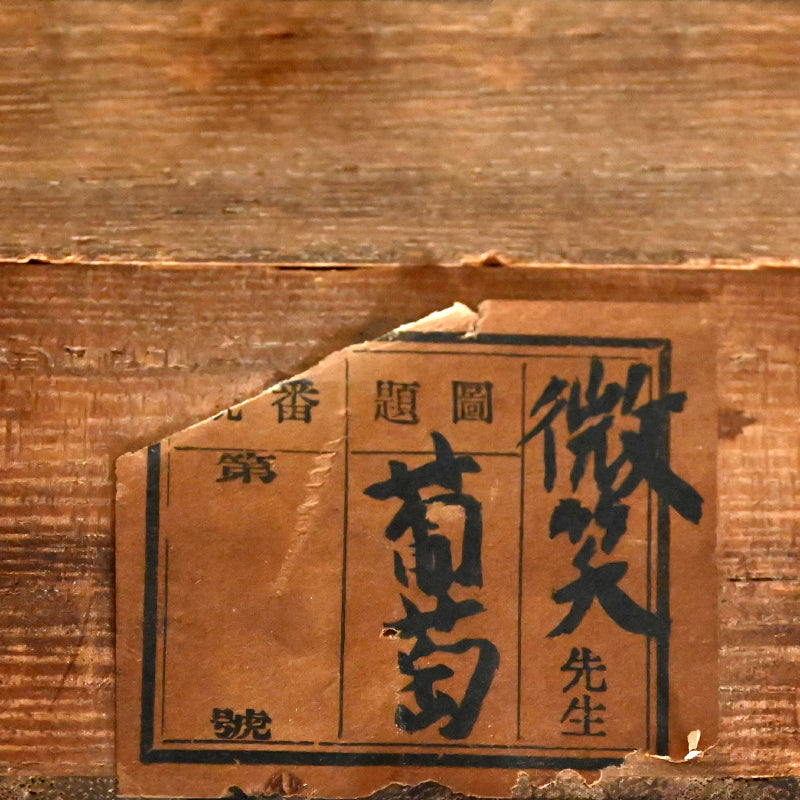 微笑先生
圖題
葡萄
番號
第
號